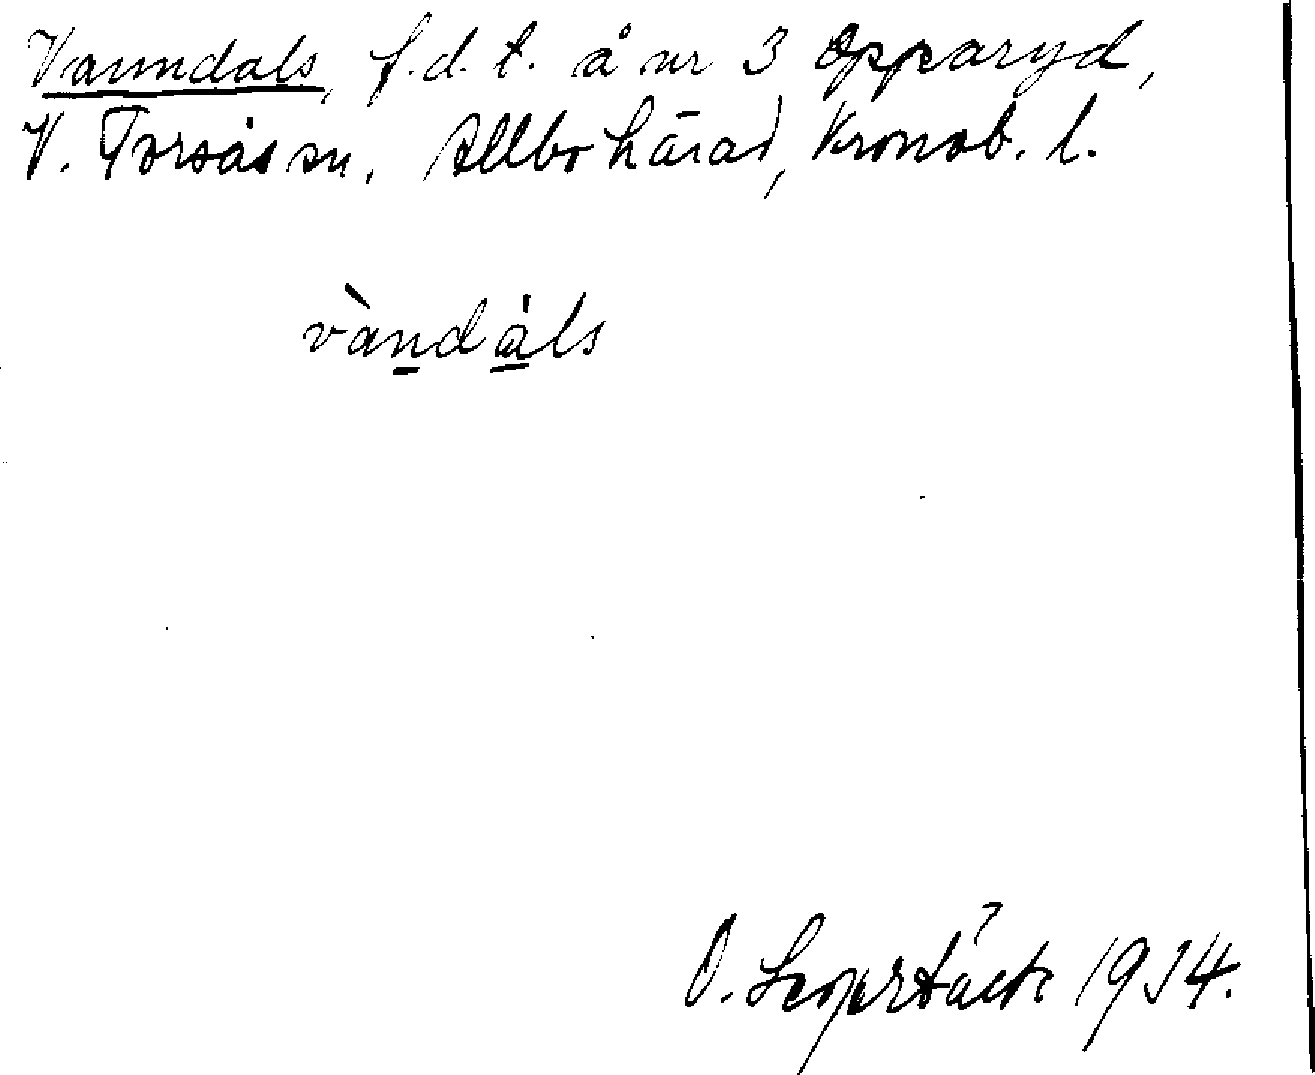 Vanndals, f.d. t. å nr 3 Opparyd,
V. Torsås sn, Allbo härad, Kronob. l.
vàndáls
O. 1914.